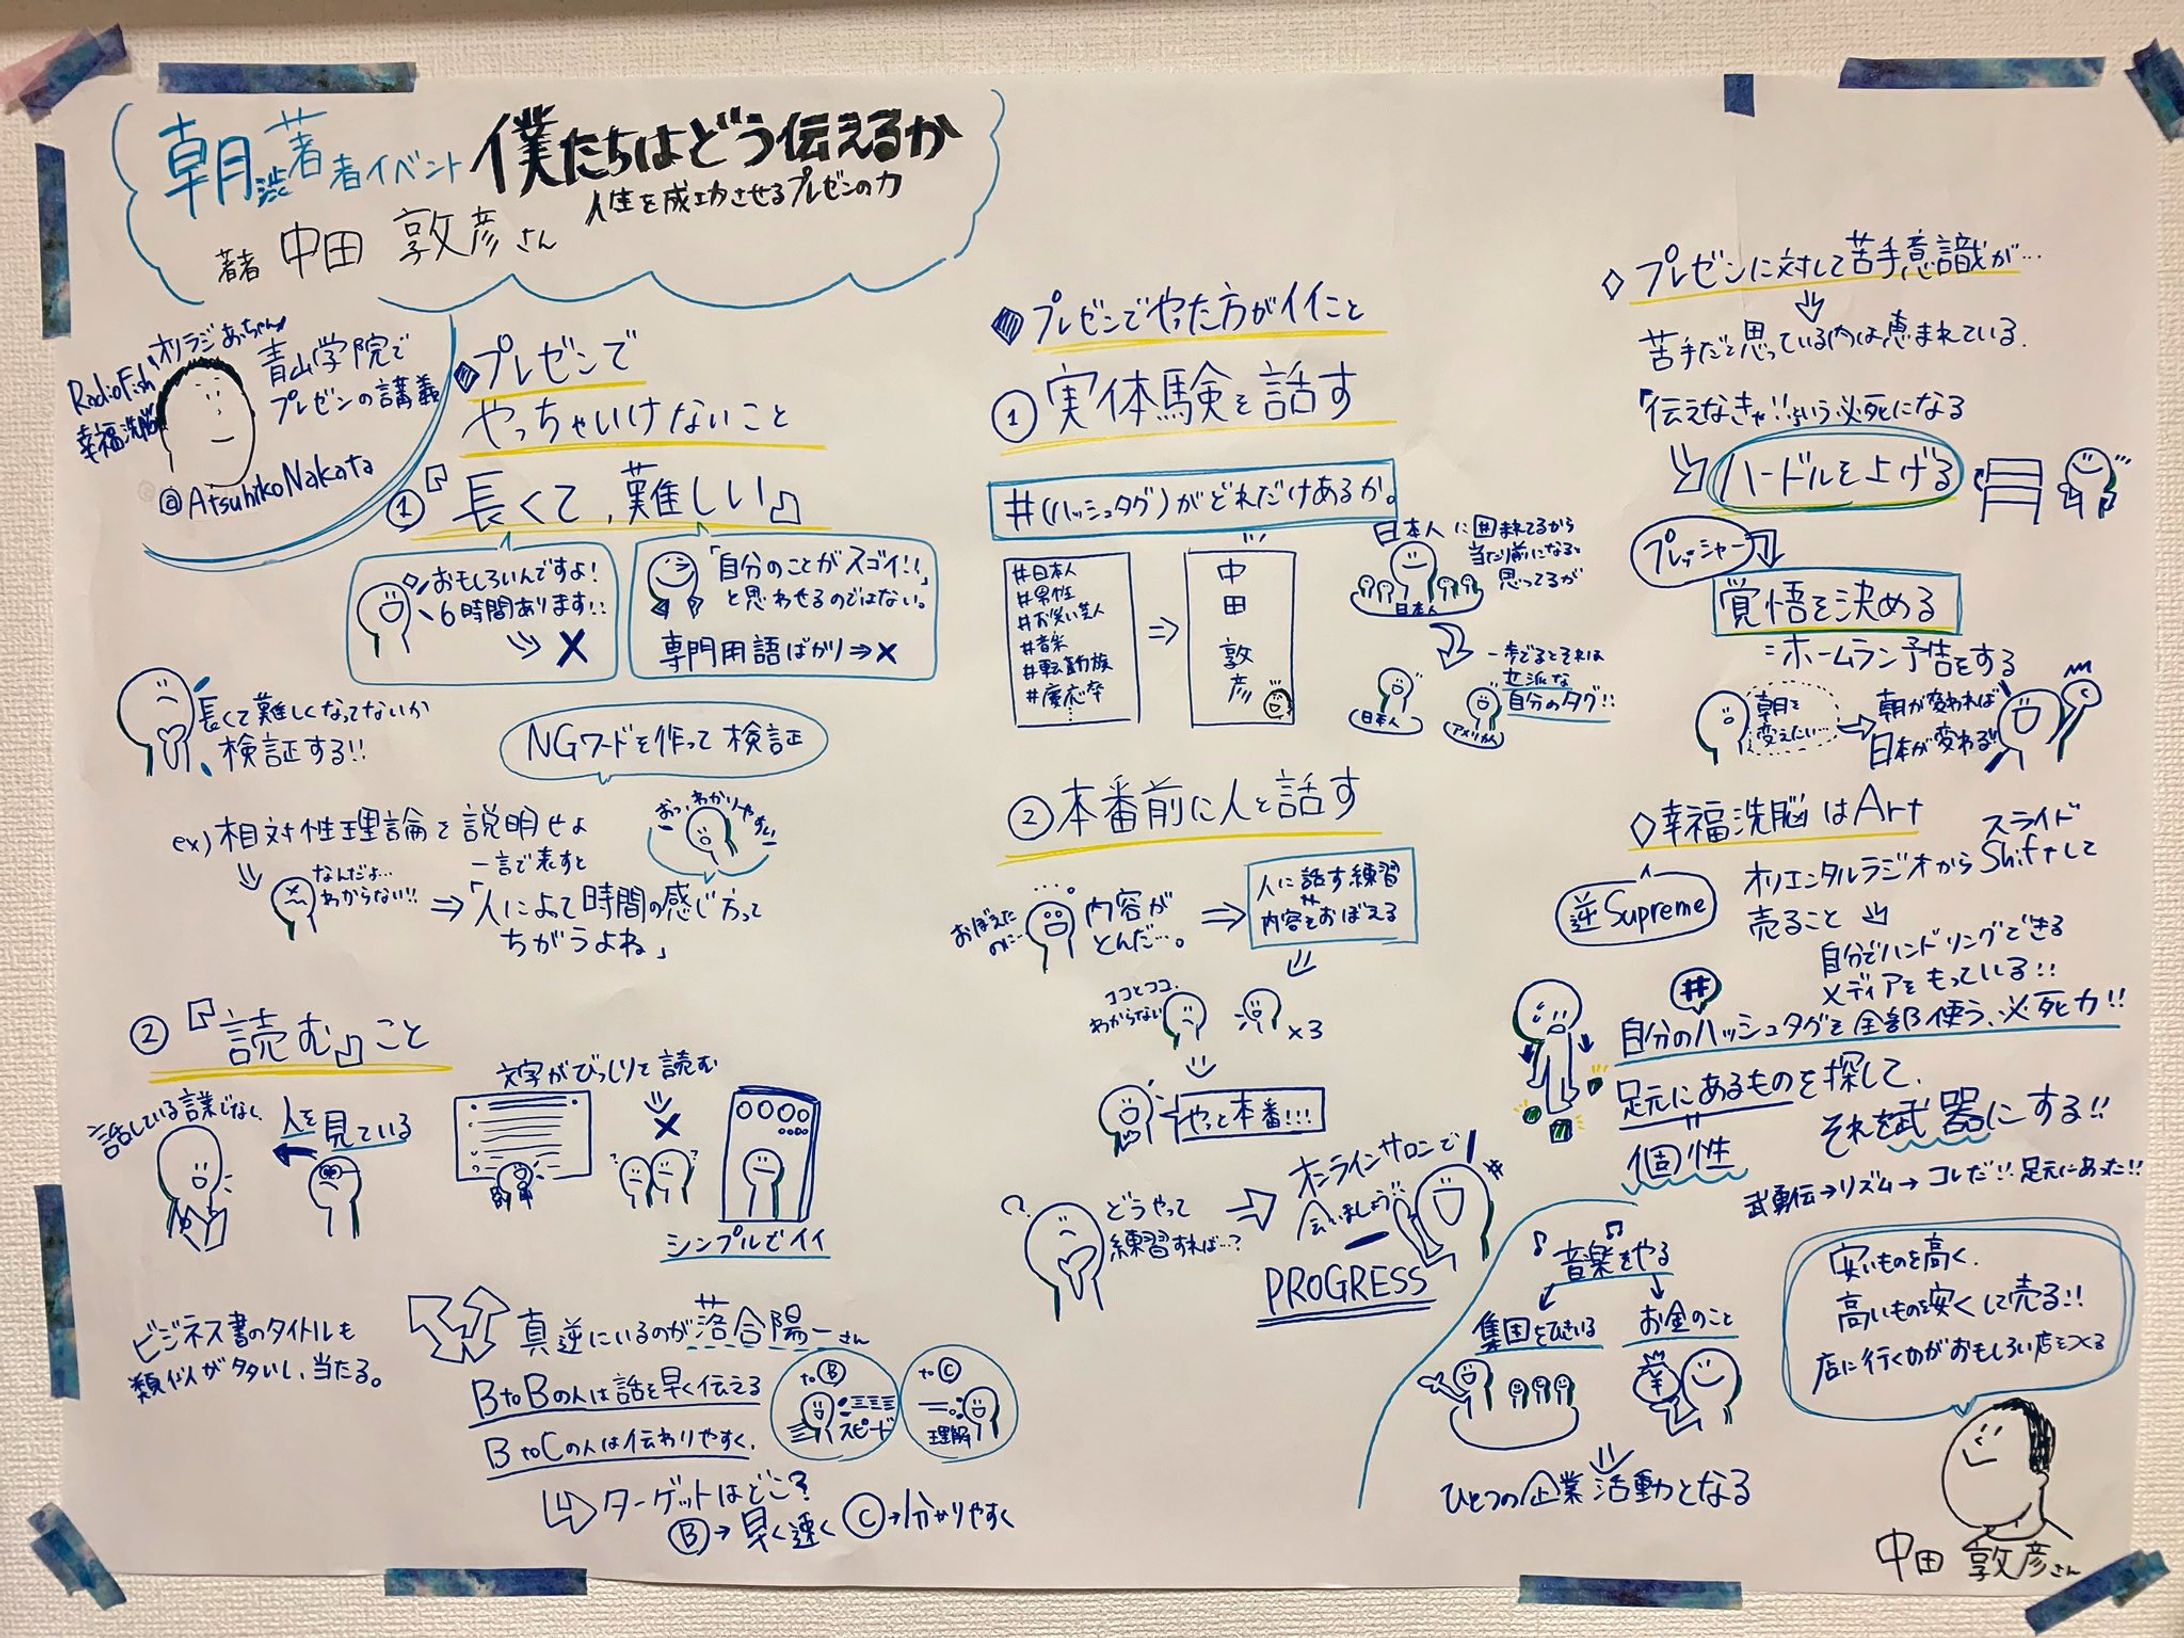 朝渋著者イベント 僕たちはどう伝えるか
人生を成功させるプレゼンの力
著者 中田 敦彦さん
オリラジあっちゃん
RadioFish
幸福洗脳
青山学院で
プレゼンの講義
@AtsuhikoNakata
◆プレゼンで
やっちゃいけないこと
①『長くて、難しい』
おもしろいんですよ!
6時間あります!!
⇒ ×
「自分のことがスゴイ!!」
と思わせるのではない。
専門用語ばかり⇒×
長くて難しくなってないか
検証する!!
NGワードを作って検証
ex)相対性理論を説明せよ
なんだよ…
わからない!!
一言で表すと
⇒「人によって時間の感じ方って
ちがうよね」
おっ、わかりやすい
②『読む』こと
話している言葉じゃなく、
人を見ている
文字がびっしりで読む
×
シンプルでイイ
ビジネス書のタイトルも
類似が多いし、当たる。
真逆にいるのが落合陽一さん
BtoBの人は話を早く伝える
BtoCの人は伝わりやすく、
toⒷ
スピード
toⒸ
理解
⇒ターゲットはどこ?
Ⓑ→早く速く Ⓒ→分かりやすく
◆プレゼンでやった方がイイこと
①実体験を話す
#(ハッシュタグ)がどれだけあるか。
#日本人
#男性
#お笑い芸人
#音楽
#転勤族
#慶応卒
⋮
⇒
中田 敦彦
日本人に囲まれてるから
当たり前になると
思ってるが
日本人
一歩でるとそれは
立派な
自分のタグ!!
日本人
アメリカ人
②本番前に人と話す
おぼえた
のに…
内容が
とんだ…。
⇒
人に話す練習
内容をおぼえる
ココとココ、
わからない
×3
やっと本番!!!
どうやって
練習すれば…?
⇒
オンラインサロンで
会いましょう
PROGRESS
◇プレゼンに対して苦手意識が…
苦手だと思っている内は恵まれている。
「伝えなきゃ!!」という必死になる
ハードルを上げる
プレッシャー
覚悟を決める
ホームラン予告をする
朝を
変えたい…
⇒
朝が変われば
日本が変わる!!
◇幸福洗脳はArt
逆Supreme
オリエンタルラジオからスライド
Shiftして
売ること
自分でハンドリングできる
メディアをもっている!!
#
自分のハッシュタグを全部使う、必死力!!
足元にあるものを探して、
それを武器にする!!
個性
武勇伝→リズム→コレだ!!足元にあった!!
音楽をやる
集団をひきいる
お金のこと
¥
ひとつの企業活動となる
安いものを高く、
高いものを安くして売る!!
店に行くのがおもしろい店をつくる
中田 敦彦さん